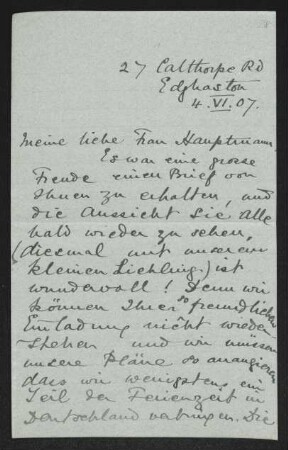 27 Calthorpe Rd
Edgbaston
4. VI. 07.
Meine liebe Frau Hauptmann
Es war eine grosse
Freude einen Brief von
Ihnen zu erhalten, und
die Aussicht Sie alle
bald wieder zu sehen,
(diesmal mit unserem
kleinen Liebling) ist
wundervoll! Denn wir
können Ihrer so freundlichen
Einladung nicht wieder
-stehen und wir müssen
unsere Pläne so arrangieren
dass wir wenigstens ein
Teil der Ferienzeit in
Deutschland verbringen. Die